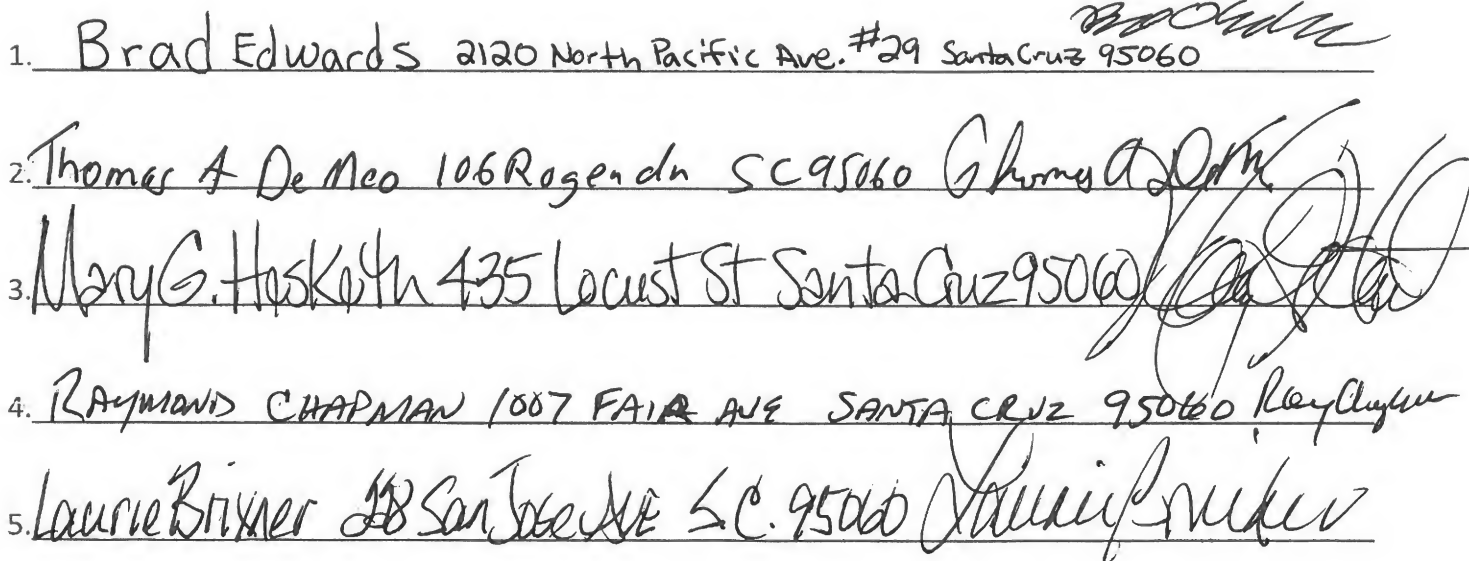 1. Brad Edwards 2120 North Pacific Ave. #29 Santa Cruz 95060
2. Thomas A De Meo 106 Rogen dn SC 95060
3. Mary G. Hesketh 435 Locust St Santa Cruz 95060
4. RAYMOND CHAPMAN 1007 FAIR AVE SANTA CRUZ 95060 Ray Chapman
5. Laurie Brixner San Jose AVE S.C. 95060 Laurie Brixner